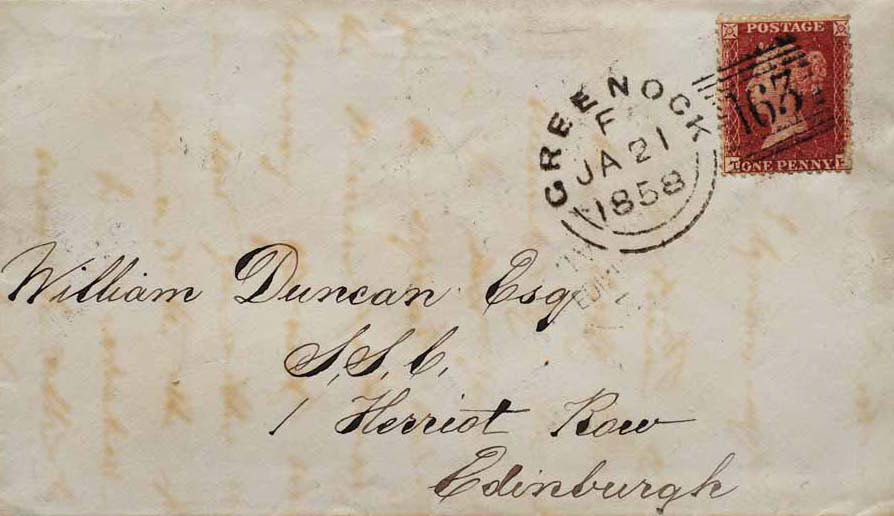 POSTAGE
163
T ONE PENNY
GREENOCK
F
JA 21
1858
William Duncan Esq
S.S.C.
1 Herriot Row
Edinburgh